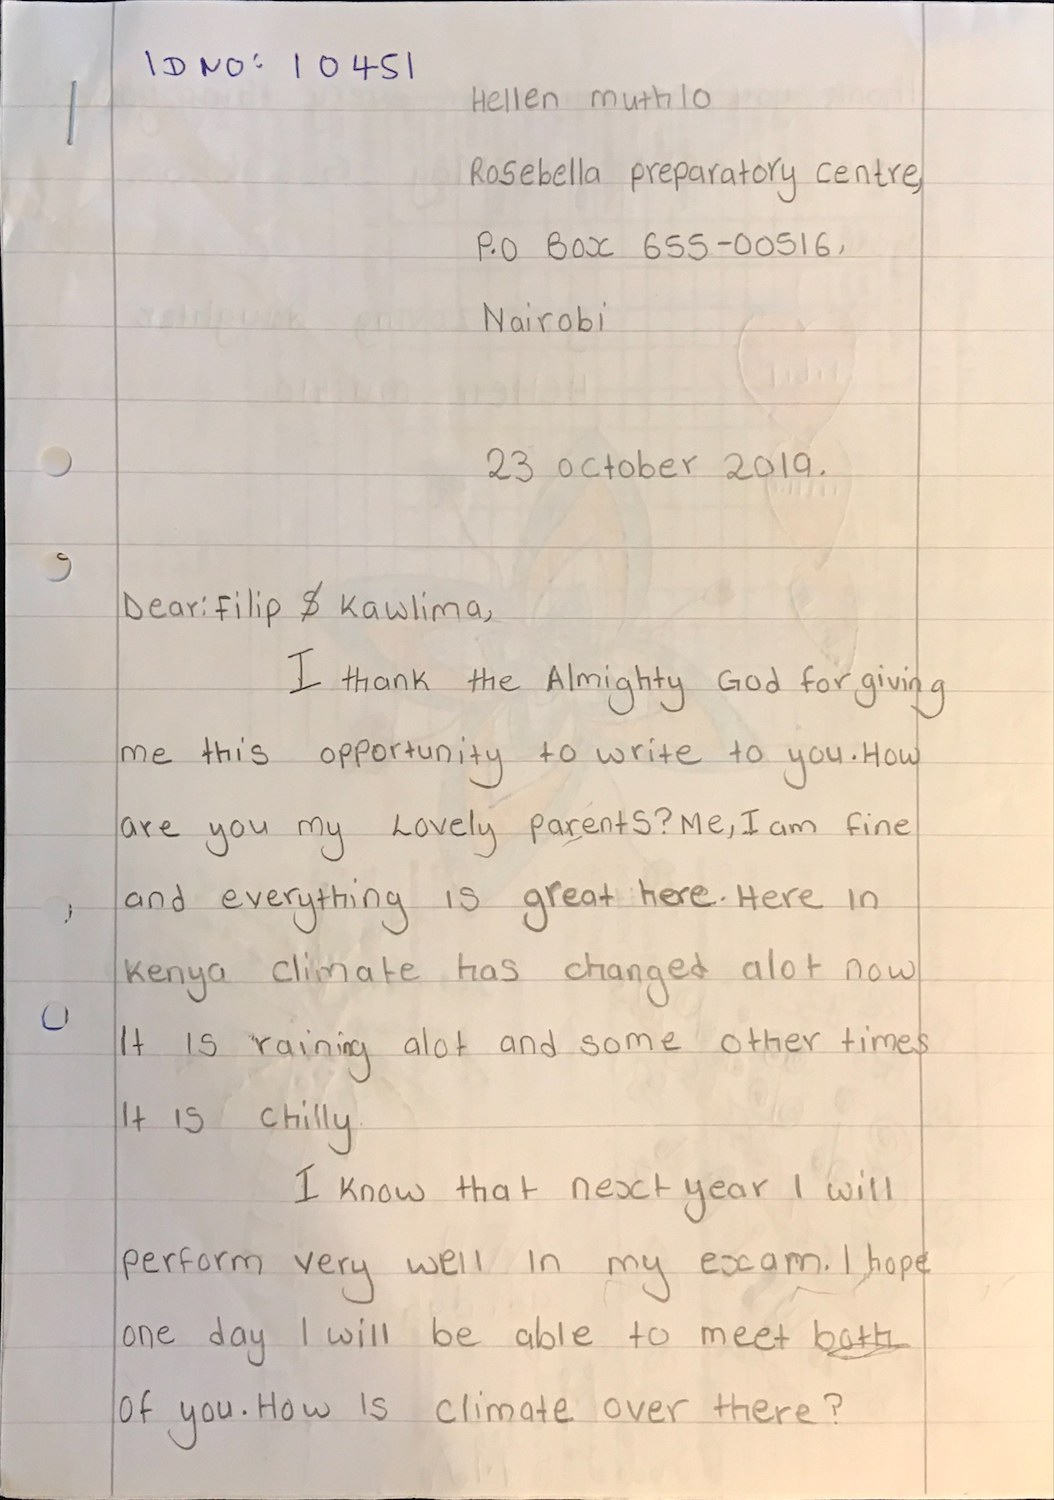 ID NO: 10451
Hellen muthlo
Rosebella preparatory centre,
P.O Box 655-00516,
Nairobi
23 october 2019.
Dear: Filip $ Kawlima,
I thank the Almighty God for giving
me this opportunity to write to you. How
are you my Lovely parents? Me, I am fine
and everything is great here. Here in
Kenya climate has changed alot now
It is raining alot and some other times
It is chilly.
I know that next year I will
perform very well in my exam. I hope
one day I will be able to meet both
of you. How is climate over there?